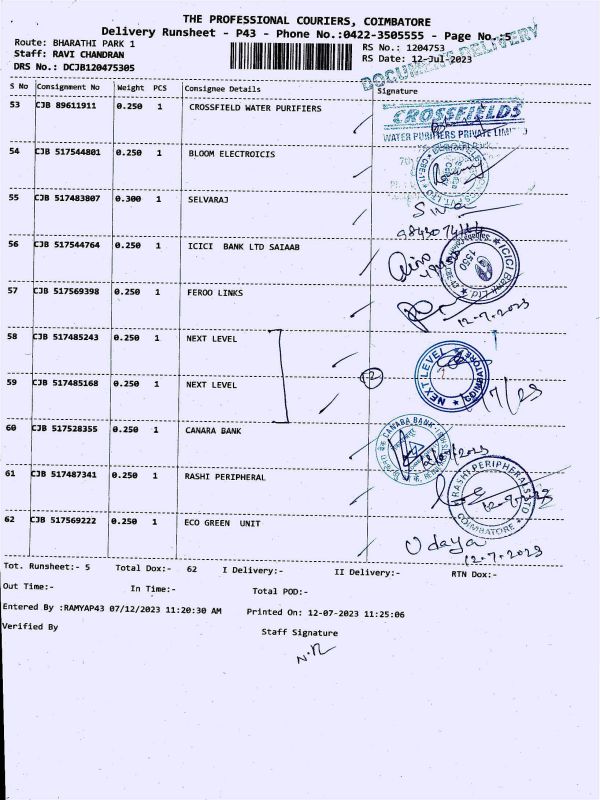 THE PROFESSIONAL COURIERS, COIMBATORE
Delivery Runsheet - P43 - Phone No.:0422-3505555 - Page No.:5
Route: BHARATHI PARK 1
RS No.: 1204753
Staff: RAVI CHANDRAN
RS Date: 12-Jul-2023
DRS No.: DCJB120475305
DOCUMENT DELIVERY
S No Consignment No Weight PCS Consignee Details Signature
53 CJB 89611911 0.250 1 CROSSFIELD WATER PURIFIERS
CROSSFIELDS
WATER PURIFIERS PRIVATE LIMITED
54 CJB 517544801 0.250 1 BLOOM ELECTROICIS
55 CJB 517483807 0.300 1 SELVARAJ
56 CJB 517544764 0.250 1 ICICI BANK LTD SAIAAB
ICICI Bank Ltd
57 CJB 517569398 0.250 1 FEROO LINKS
12-7-2023
58 CJB 517485243 0.250 1 NEXT LEVEL
59 CJB 517485168 0.250 1 NEXT LEVEL
NEXT LEVEL COIMBATORE
60 CJB 517528355 0.250 1 CANARA BANK
CANARA BANK
61 CJB 517487341 0.250 1 RASHI PERIPHERAL
RASHI PERIPHERALS LTD
COIMBATORE
12-7-2023
62 CJB 517569222 0.250 1 ECO GREEN UNIT
Udaya
12-7-2023
Tot. Runsheet:- 5 Total Dox:- 62 I Delivery:- II Delivery:- RTN Dox:-
Out Time:- In Time:- Total POD:-
Entered By :RAMYAP43 07/12/2023 11:20:30 AM Printed On: 12-07-2023 11:25:06
Verified By Staff Signature